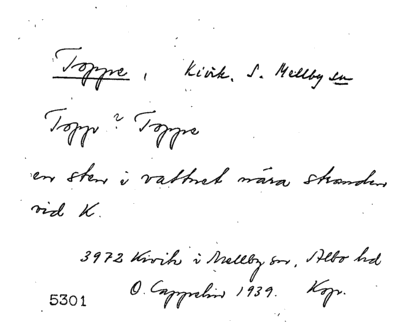 Toppe, Kivik. S. Mellby sn
Topp ? Toppe
en sten i vattnet nära stranden
vid K.
3972 Kivik i Mellby sn, Albo hd
O. Cappelin 1939. Kop.
5301